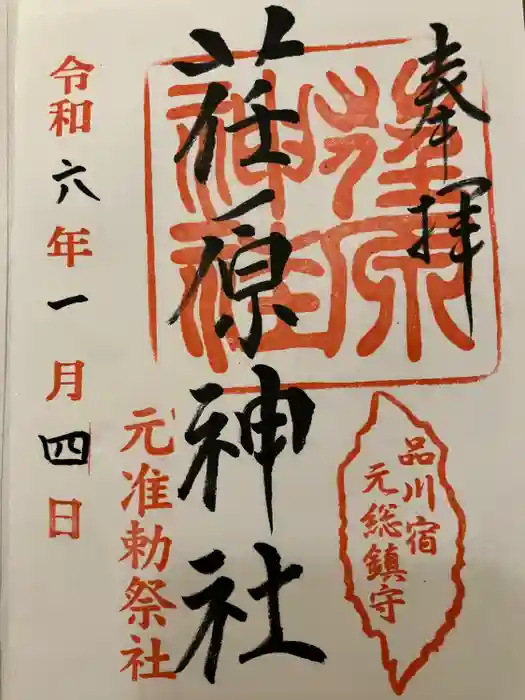 奉拝
荏原神社
品川宿
元総鎮守
元准勅祭社
令和六年一月四日